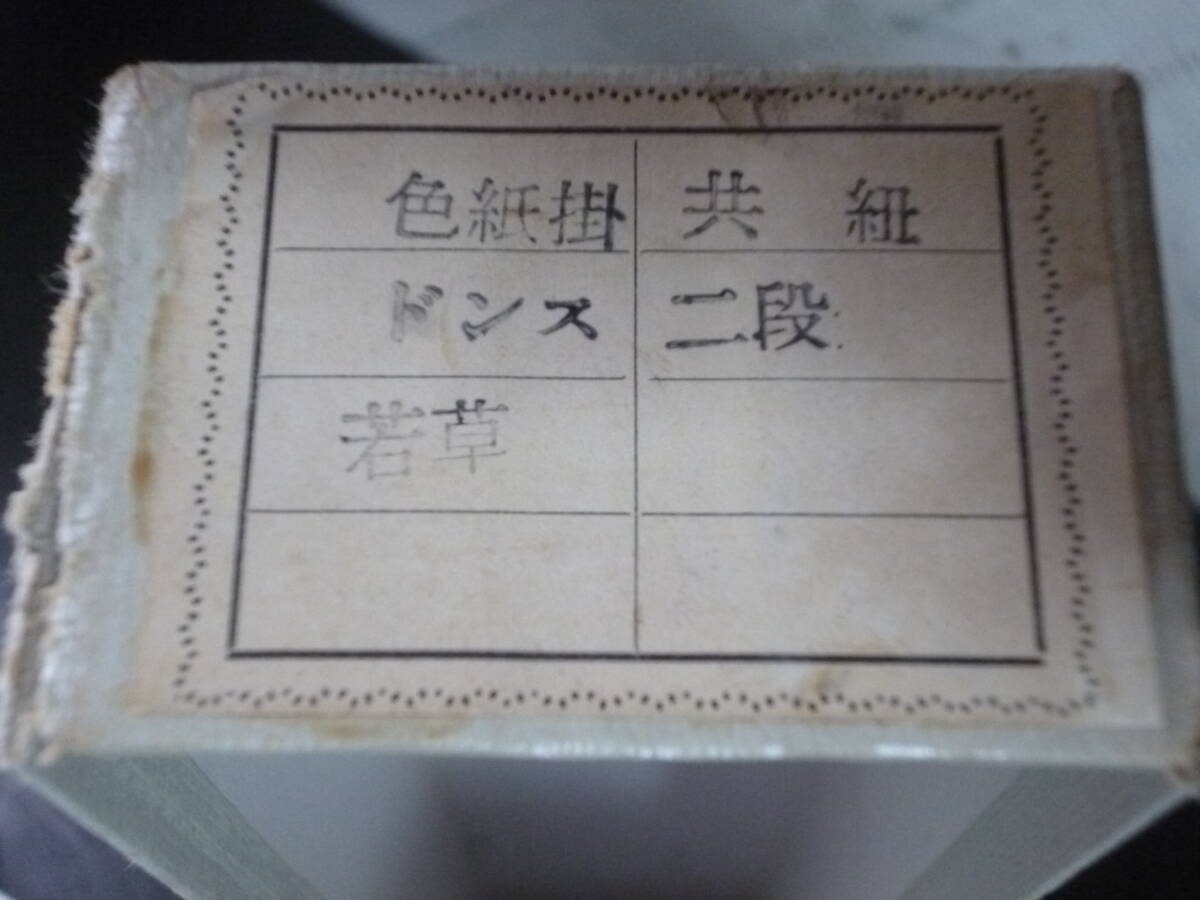 色紙掛 共 紐
ドンス 二段
若草